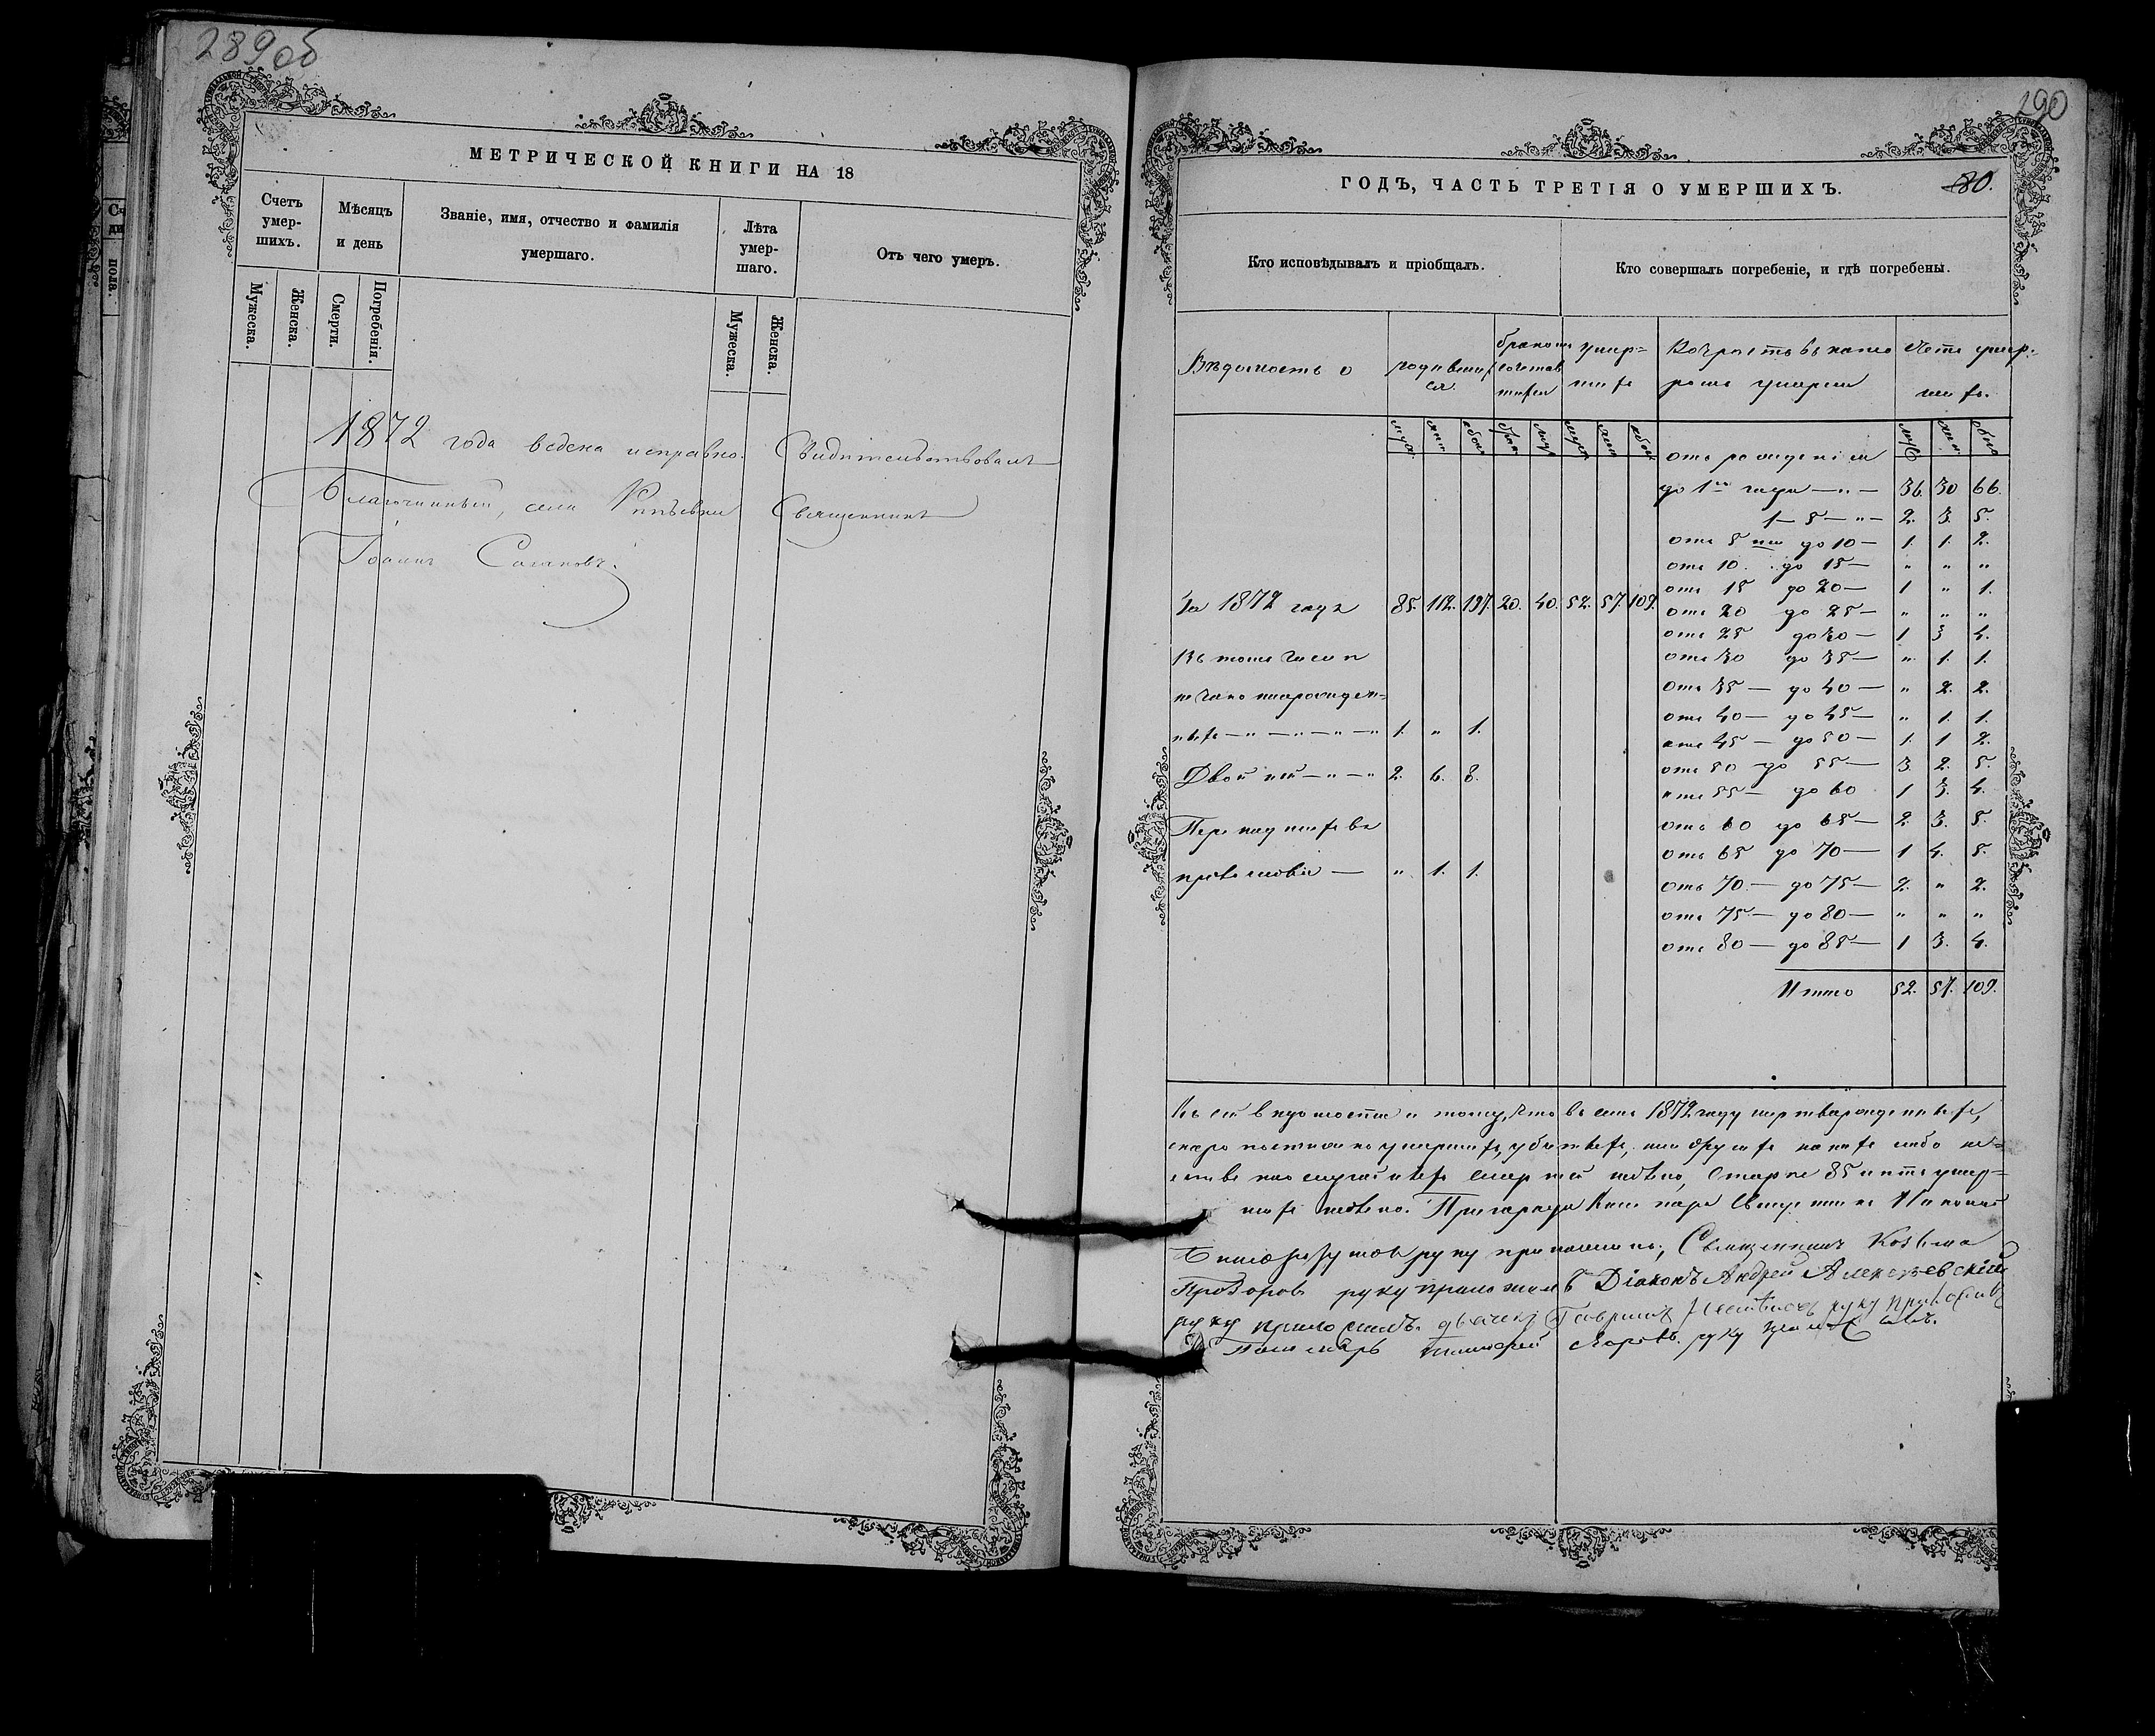 289об
МЕТРИЧЕСКОЙ КНИГИ НА 18
Счетъ умер-шихъ.
Мѣсяцъ и день
Званіе, имя, отчество и фамилія умершаго.
Лѣта умер-шаго.
Отъ чего умеръ.
Мужеска.
Женска.
Смерти.
Погребенія.
Мужеска.
Женска.
1872 года ведена исправно. Свидѣтельствовалъ
Благочинный, села Рѣпьевки Священникъ
Іоаннъ
290
ГОДЪ, ЧАСТЬ ТРЕТІЯ О УМЕРШИХЪ.
80.
Кто исповѣдывалъ и пріобщалъ.
Кто совершалъ погребеніе, и гдѣ погребены.
Вѣдомость о
родившихся
умер-шихъ
Лѣта умер-шихъ.
отъ рожденія
до 1го года — „ — 36. 30 66.
1 — 5 — „ — 2. 3. 5.
отъ 5 ти до 10 — 1. 1. 2.
отъ 10. до 15 — „ „ „
отъ 15 до 20 — 1 „ 1.
За 1872 годъ 85. 112. 197. 20. 40. 52. 57. 109.
отъ 20 до 25 — „ „ „
отъ 25 до 30 — 1 3 4.
отъ 30 до 35 — „ 1. 1.
Въ томъ числѣ
отъ 35 — до 40 — „ 2. 2.
отъ 40 — до 45 — „ 1. 1.
1. „ 1.
отъ 45 — до 50 — 1. 1 2.
отъ 50 — до 55 — 3. 2. 5.
Двойней — „ — „ 2. 6. 8.
отъ 55 — до 60 1 3. 4.
отъ 60 до 65 — 2. 3. 5.
отъ 65 до 70 — 1 4. 5.
— „ 1. 1.
отъ 70 — до 75 — 2. „ 2.
отъ 75 — до 80 — „ „ „
отъ 80 — до 85 — 1 3. 4.
Итого 52. 57. 109.
Къ сей вѣдомости и тому, что въ семъ 1872 году мертворожденныхъ,
скоропостижно умершихъ, убитыхъ, или другихъ какихъ либо не-
случайныхъ смертей не было, Старѣе 85 лѣтъ умер-
шихъ не было.
руку приложилъ, Священникъ Козьма
руку приложилъ Діаконъ Андрей Алексѣевскій
руку приложилъ. дьячекъ Гавриилъ руку приложилъ
Пономарь руку приложилъ.